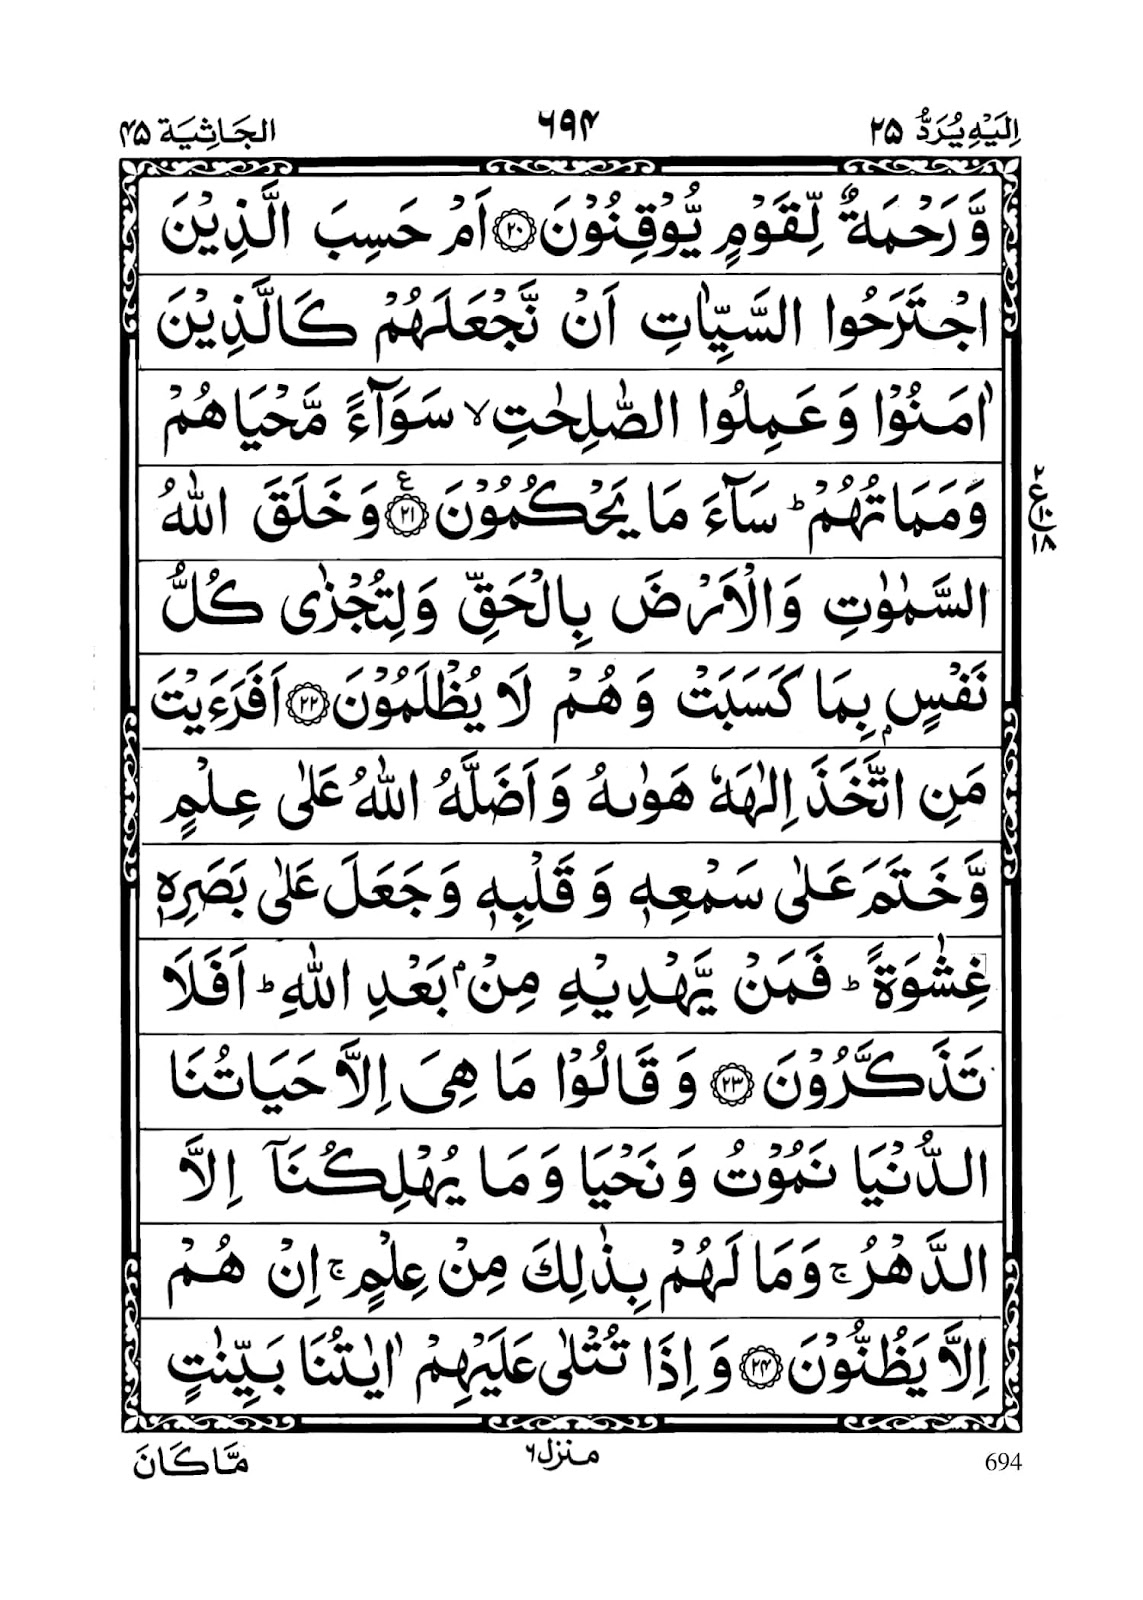 اِلَيْهِ يُرَدُّ ۲۵ ۶۹۴ الجَاثِيَة ۴۵
وَّ رَحْمَةٌ لِّقَوْمٍ يُّوْقِنُوْنَ ۲۰ اَمْ حَسِبَ الَّذِيْنَ
اجْتَرَحُوا السَّيِّاٰتِ اَنْ نَّجْعَلَهُمْ كَالَّذِيْنَ
اٰمَنُوْا وَ عَمِلُوا الصّٰلِحٰتِ ۙ سَوَآءً مَّحْيَاهُمْ
وَ مَمَاتُهُمْ ؕ سَآءَ مَا يَحْكُمُوْنَ ۲۱ ع وَ خَلَقَ اللّٰهُ
السَّمٰوٰتِ وَالْاَرْضَ بِالْحَقِّ وَ لِتُجْزٰى كُلُّ
نَفْسٍۭ بِمَا كَسَبَتْ وَ هُمْ لَا يُظْلَمُوْنَ ۲۲ اَفَرَءَيْتَ
مَنِ اتَّخَذَ اِلٰهَهٗ هَوٰىهُ وَ اَضَلَّهُ اللّٰهُ عَلٰى عِلْمٍ
وَّ خَتَمَ عَلٰى سَمْعِهٖ وَ قَلْبِهٖ وَ جَعَلَ عَلٰى بَصَرِهٖ
غِشٰوَةً ؕ فَمَنْ يَّهْدِيْهِ مِنْۢ بَعْدِ اللّٰهِ ؕ اَفَلَا
تَذَكَّرُوْنَ ۲۳ وَ قَالُوْا مَا هِىَ اِلَّا حَيَاتُنَا
الدُّنْيَا نَمُوْتُ وَ نَحْيَا وَ مَا يُهْلِكُنَاۤ اِلَّا
الدَّهْرُ ۚ وَ مَا لَهُمْ بِذٰلِكَ مِنْ عِلْمٍ ۚ اِنْ هُمْ
اِلَّا يَظُنُّوْنَ ۲۴ وَ اِذَا تُتْلٰى عَلَيْهِمْ اٰيٰتُنَا بَيِّنٰتٍ
۲ ع ۱۰ ۱۸
694 منزل ۶ مَّا كَانَ